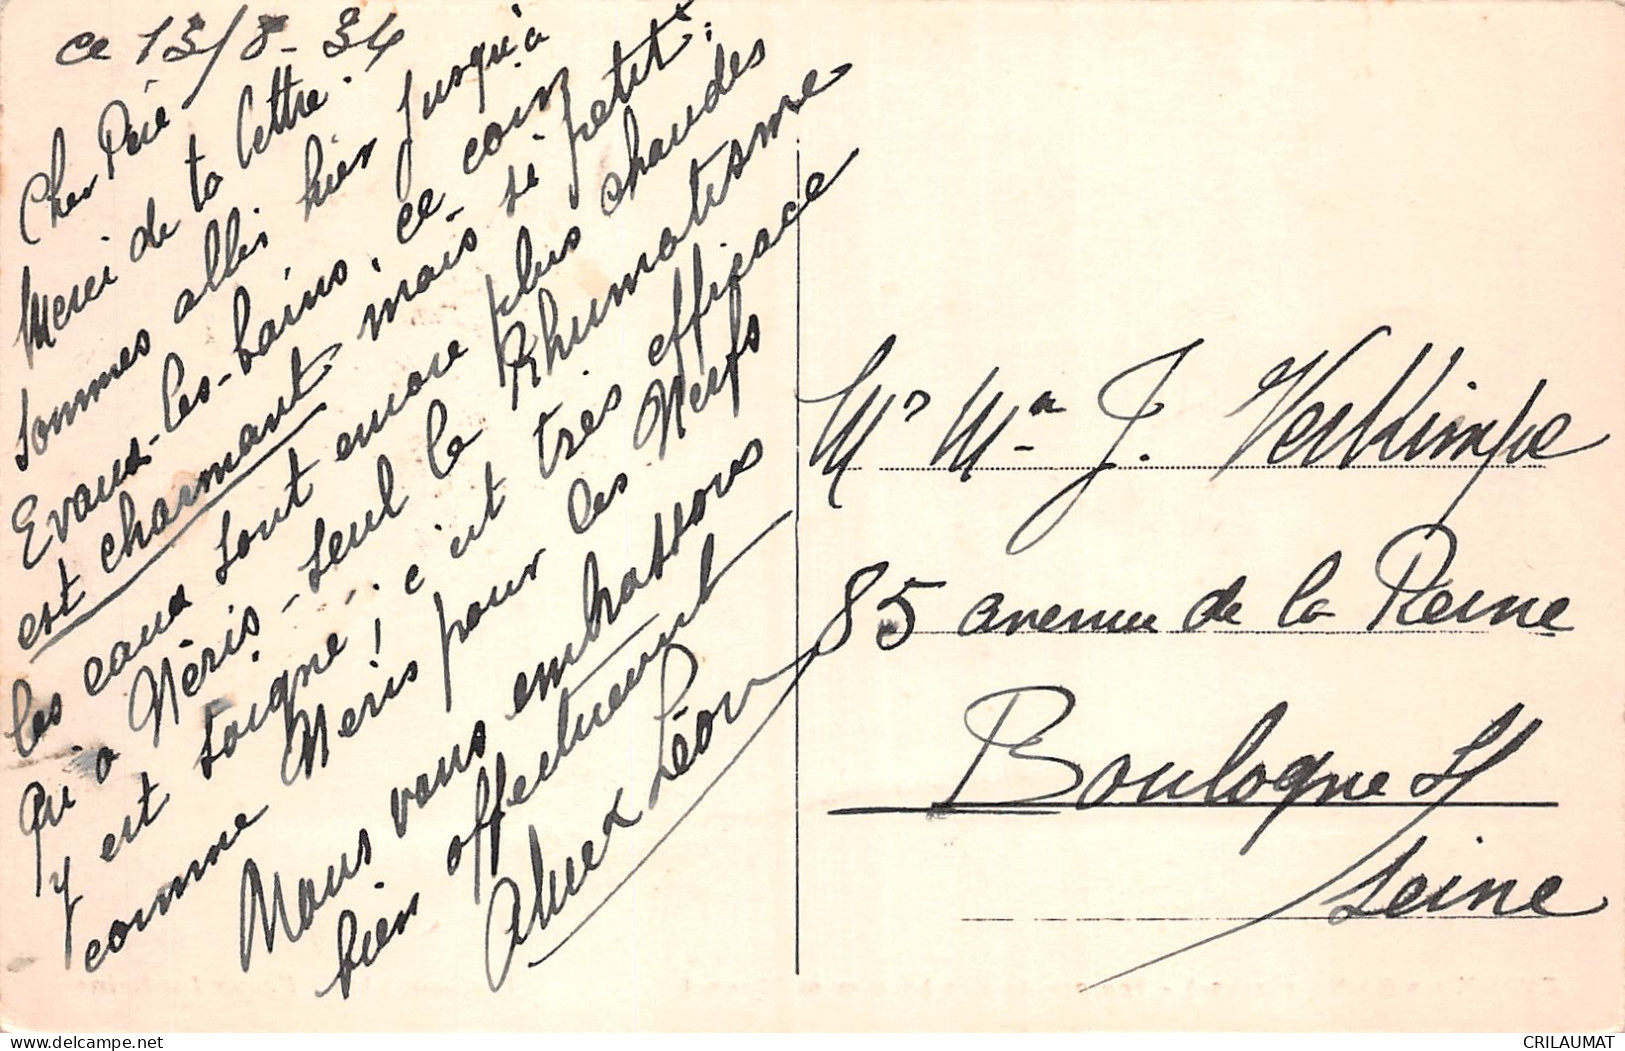 ce 13/8-34
Cher Père
Merci de ta lettre.
Sommes allés hier jusqu'à
Evaux-les-bains. ce coin
est charmant mais si petit;
les eaux sont encore plus chaudes
qu'à Néris - seul le Rhumatisme
y est soigné; c'est très efficace
comme Néris pour les Nerfs
Nous vous embrassons
bien affectueusement
Léon
Mr Ma J. Verkimpe
85 avenue de la Reine
Boulogne s/
Seine
delcampe.net
CRILAUMAT